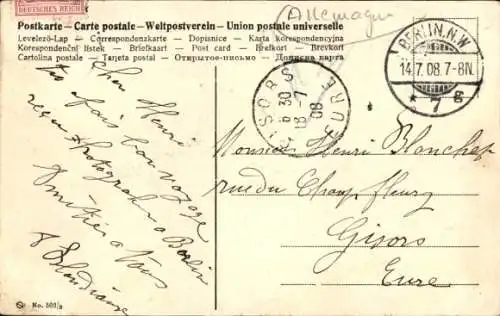 DEUTSCHES REICH
Allemagne
Postkarte — Carte postale — Weltpostverein — Union postale universelle
Levelező-Lap — Correspondenzkarte — Dopisnice — Karta korespondencyjna
Korespondenční lístek — Briefkaart — Post card — Brefkort — Brevkort
Cartolina postale — Tarjeta postal — Открытое письмо — Дописна карта
BERLIN. N.W.
14.7.08.7-8N.
* 7 g
GISORS
6 30
16 -7
08
EURE
Cher Henri
fais bon voyage
reçu Photographie à Berlin
Amitiés à Vous
Monsieur Henri Blanchet
rue du Champ fleury
Gisors
Eure
No. 502/3